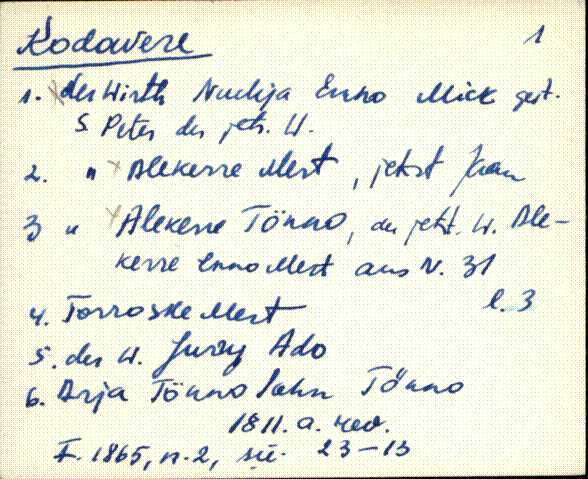 Kodavere 1
1. der Wirth Nudija Enno Mick gest.
S. Peter der jetz. W.
2. " Alekerre Mert, jetzt Jaan
3 " Alekerre Tönno, der jetzt. W. Ale-
kerre Enno Mert aus N. 31
4. Torroske Mert l. 3
5. der W. Jurry Ado
6. Arja Tönno Sohn Tönno
1811. a. rev.
F. 1865, n. 2, sü. 23-13